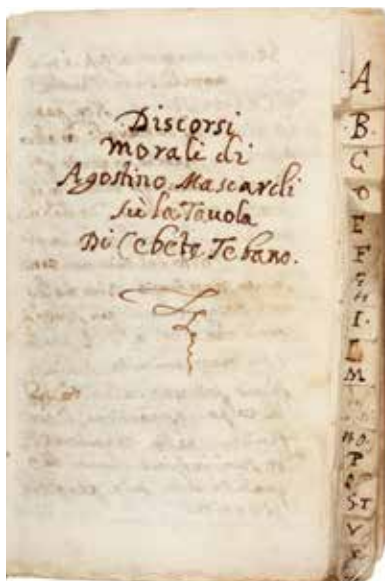 Discorsi
morali di
Agostino Mascardi
sù la Tavola
Di Cebete Tebano.
A
B.
C
D
E
F
I.
L
M
P
S. T
V